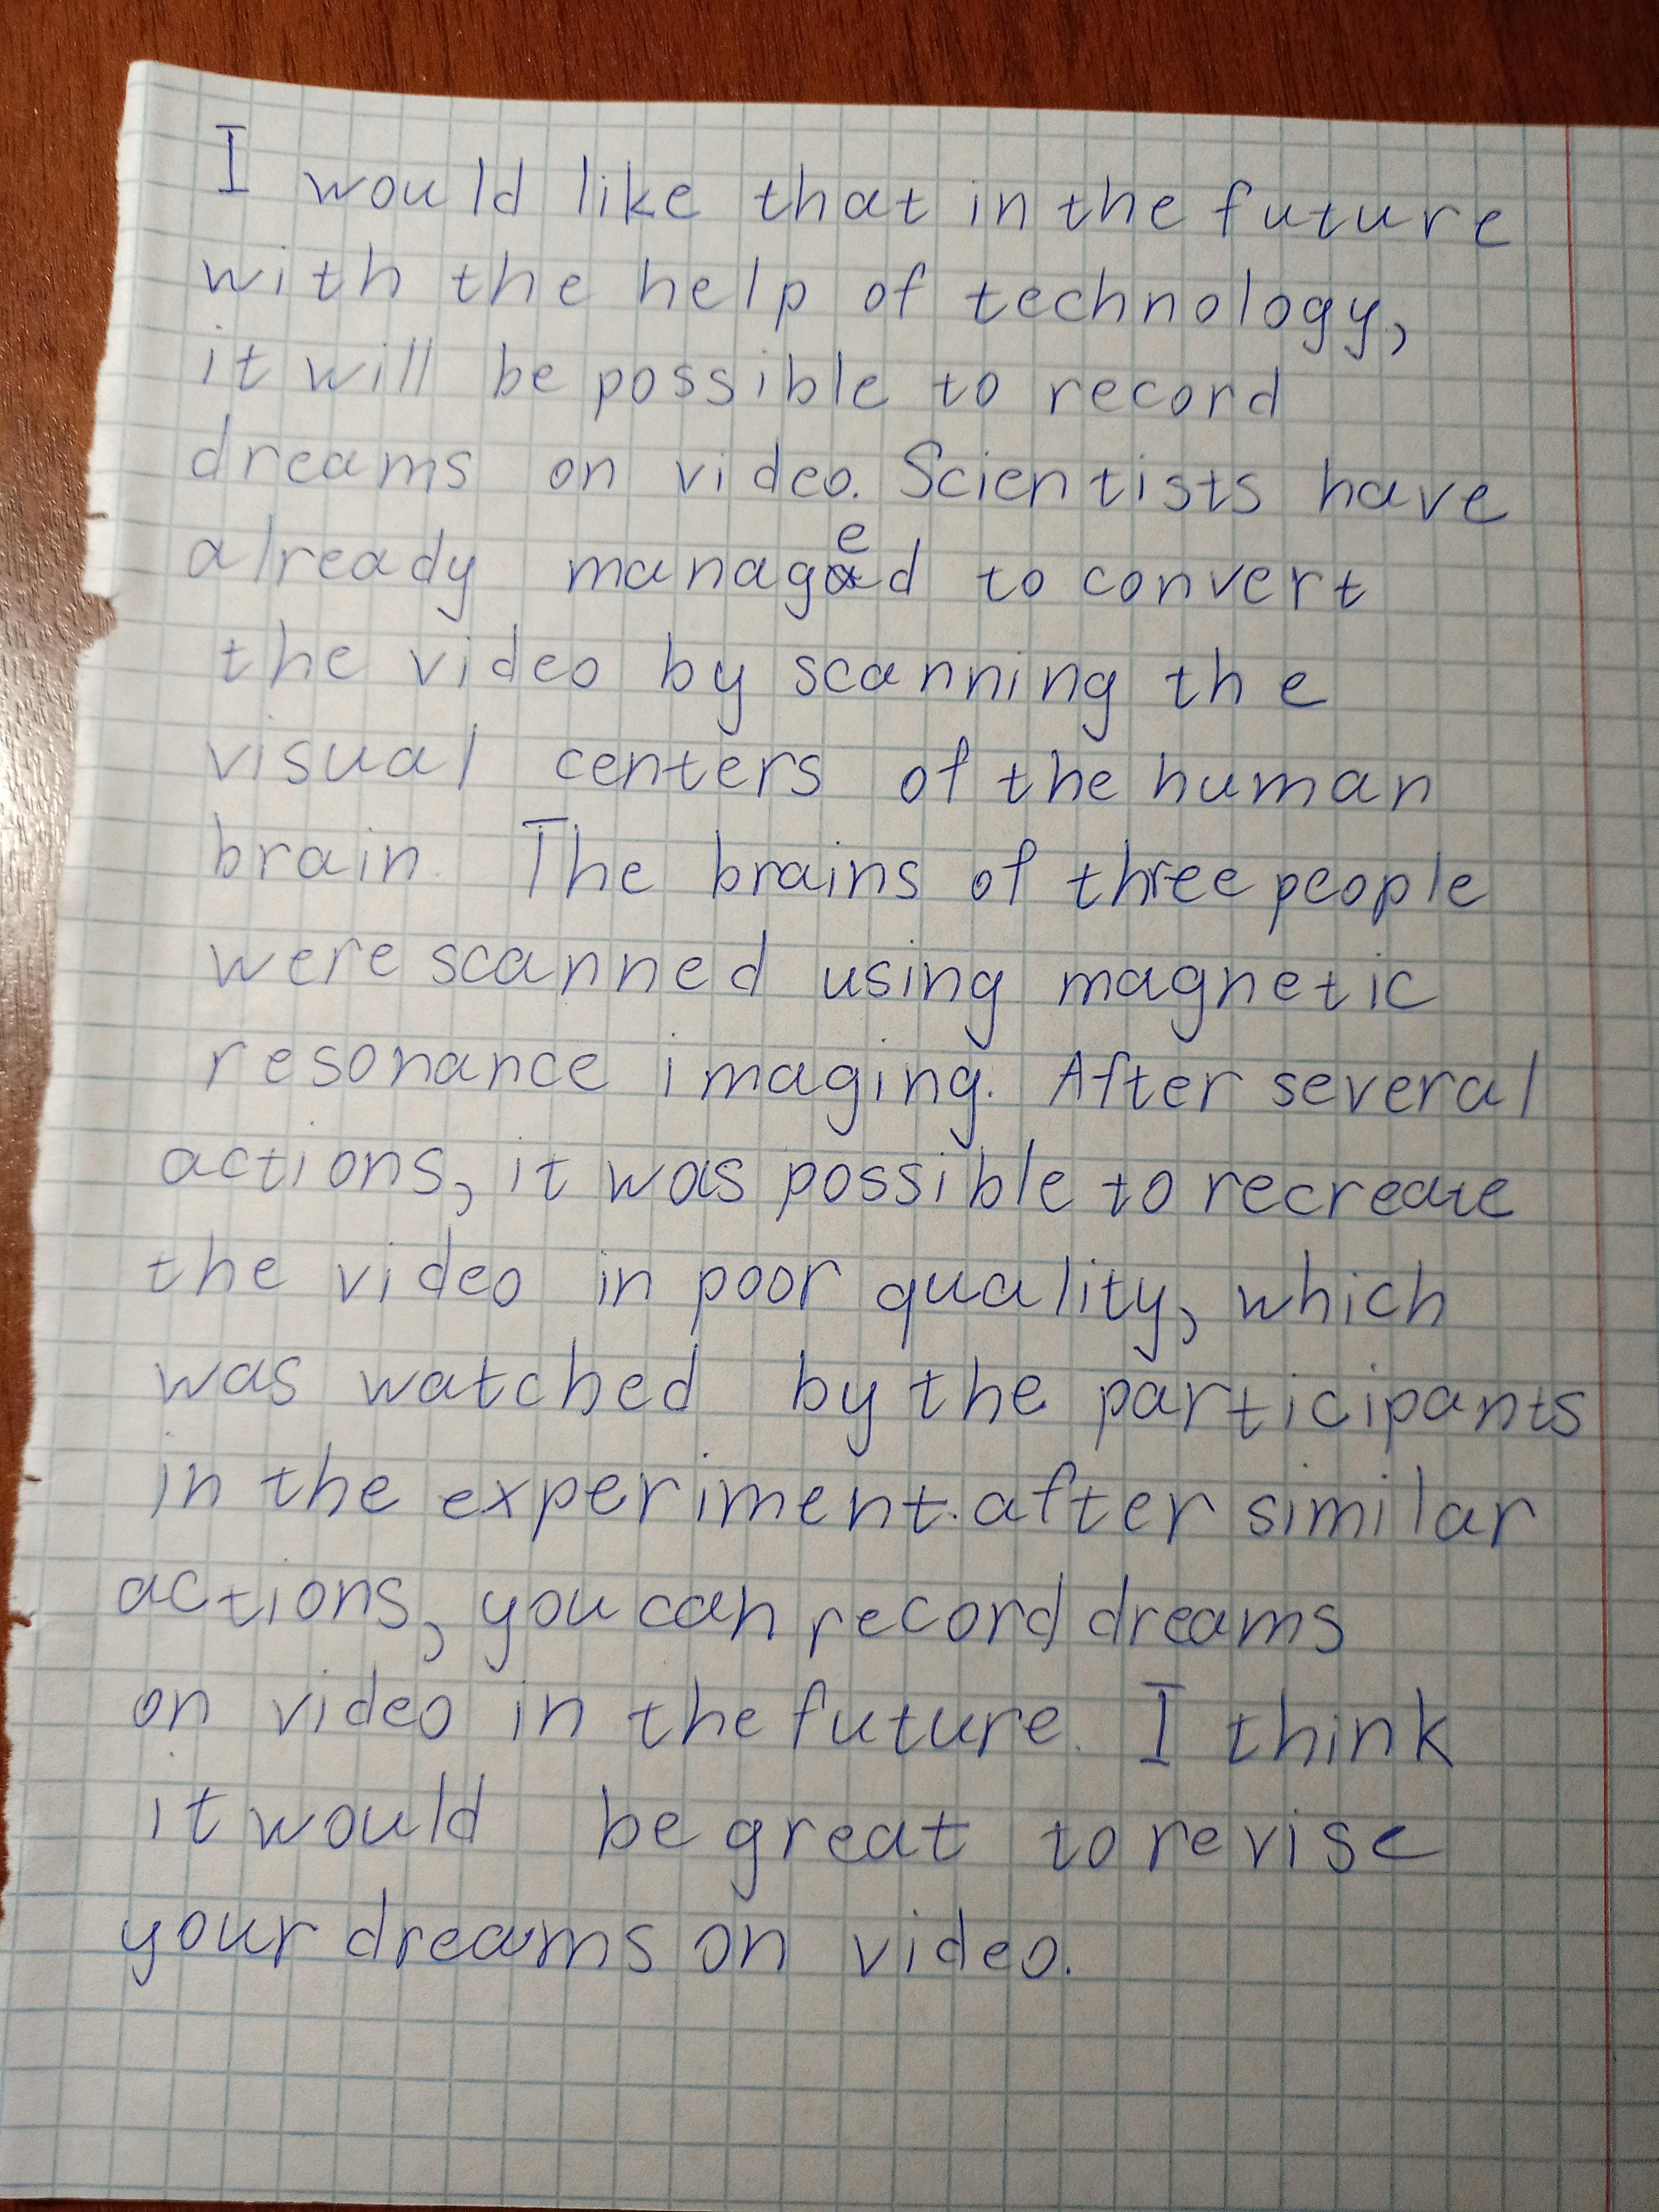 I would like that in the future
with the help of technology,
it will be possible to record
dreams on video. Scientists have
already managed to convert
the video by scanning the
visual centers of the human
brain. The brains of three people
were scanned using magnetic
resonance imaging. After several
actions, it was possible to recreate
the video in poor quality, which
was watched by the participants
in the experiment. after similar
actions, you can record dreams
on video in the future. I think
it would be great to revise
your dreams on video.